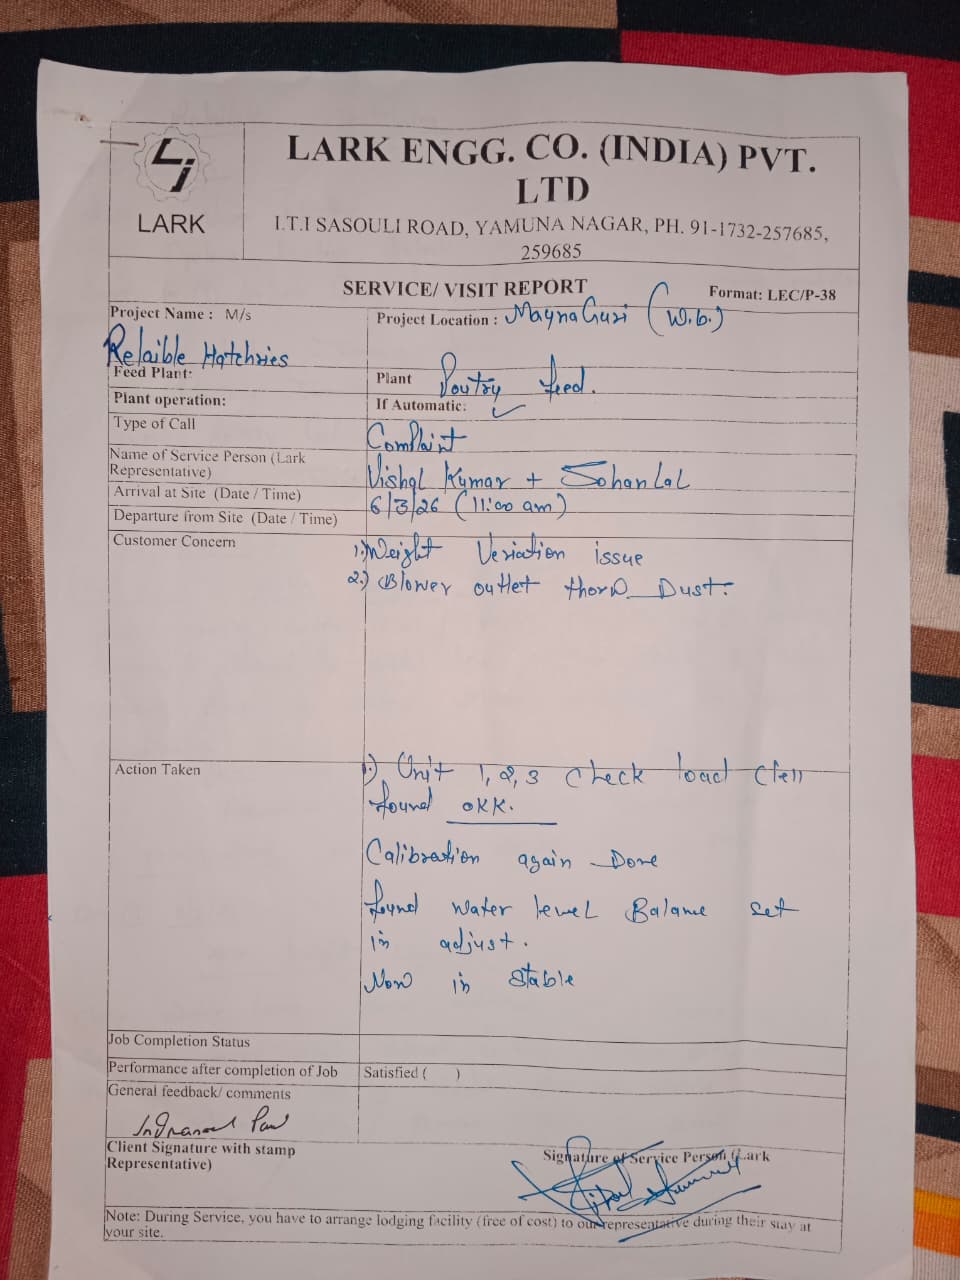 LARK
LARK ENGG. CO. (INDIA) PVT.
LTD
I.T.I SASOULI ROAD, YAMUNA NAGAR, PH. 91-1732-257685,
259685
SERVICE/ VISIT REPORT
Format: LEC/P-38
Project Name : M/s
Relaible Hatchries
Project Location : MaynaGuri (W.b.)
Feed Plant:
Plant Poutry feed.
Plant operation:
If Automatic: ✓
Type of Call
Complaint
Name of Service Person (Lark
Representative)
Vishal Kumar + Sohan Lal
Arrival at Site (Date / Time)
6/3/26 (11:00 am)
Departure from Site (Date / Time)
Customer Concern
1.) Weight Veriation issue
2.) Blower outlet Dust.
Action Taken
1.) Unit 1, 2, 3 check load
found OKK.
Calibration again Done
found water level Balance set
in adjust.
Now in Stable
Job Completion Status
Performance after completion of Job
Satisfied ( )
General feedback/ comments
Client Signature with stamp
Representative)
Signature of Service Person (Lark
Note: During Service, you have to arrange lodging facility (free of cost) to our representative during their stay at
your site.